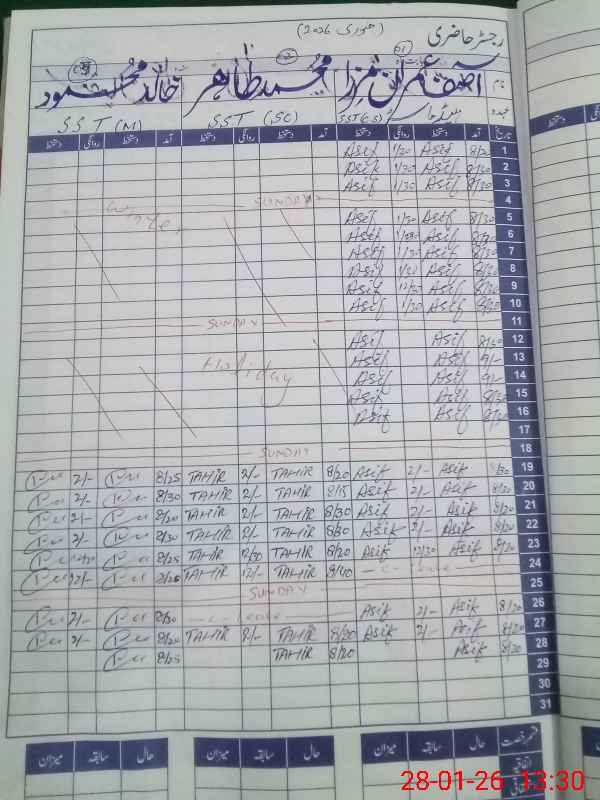 رجسٹر حاضری (جنوری 2026)
نام آصف عمران مرزا 01 محمد طاہر 02 خالد محمود 03
عہدہ SST (CS) S.S.T (SC) S.S.T (M)
تاریخ آمد دستخط روانگی دستخط آمد دستخط روانگی دستخط آمد دستخط روانگی دستخط
1 8/30 Asif 1/30 Asif
2 8/30 Asif 1/30 Asif
3 8/30 Asif 1/30 Asif
4 SUNDAY
5 8/30 Asif 1/30 Asif
6 Asif Asif
7 8/30 Asif 1/30 Asif
8 Asif 1/30 Asif
9 8/30 Asif 12/30 Asif
10 8/30 Asif 1/30 Asif
11 SUNDAY
12 8/30 Asif Asif
13 9/- Asif Asif
14 9/- Asif Asif
15 8/30 Asif Asif
16 Asif Asif
17
Winter
Holiday
18 SUNDAY
19 8/30 Asif 2/- Asif 8/20 TAHIR 2/- TAHIR 8/25 2/-
20 8/20 Asif 2/- Asif 8/15 TAHIR 2/- TAHIR 8/30 2/-
21 8/20 Asif 2/- Asif 8/30 TAHIR 2/- TAHIR 8/20 2/-
22 8/20 Asif 2/- Asif 8/30 TAHIR 2/- TAHIR 8/30 2/-
23 8/20 Asif 12/30 Asif 8/20 TAHIR 12/30 TAHIR 8/25
24 - C - leave - 8/40 TAHIR 12/- TAHIR 8/25 12/-
25 SUNDAY
26 8/20 Asif 2/- Asif - C - leave - 8/30 2/-
27 8/20 Asif 2/- Asif 8/20 TAHIR 2/- TAHIR 8/20 2/-
28 8/20 Asif 8/20 TAHIR 8/25
29
30
31
قسم رخصت حال سابقہ میزان حال سابقہ میزان حال سابقہ میزان
اتفاقیہ
28-01-26 13:30